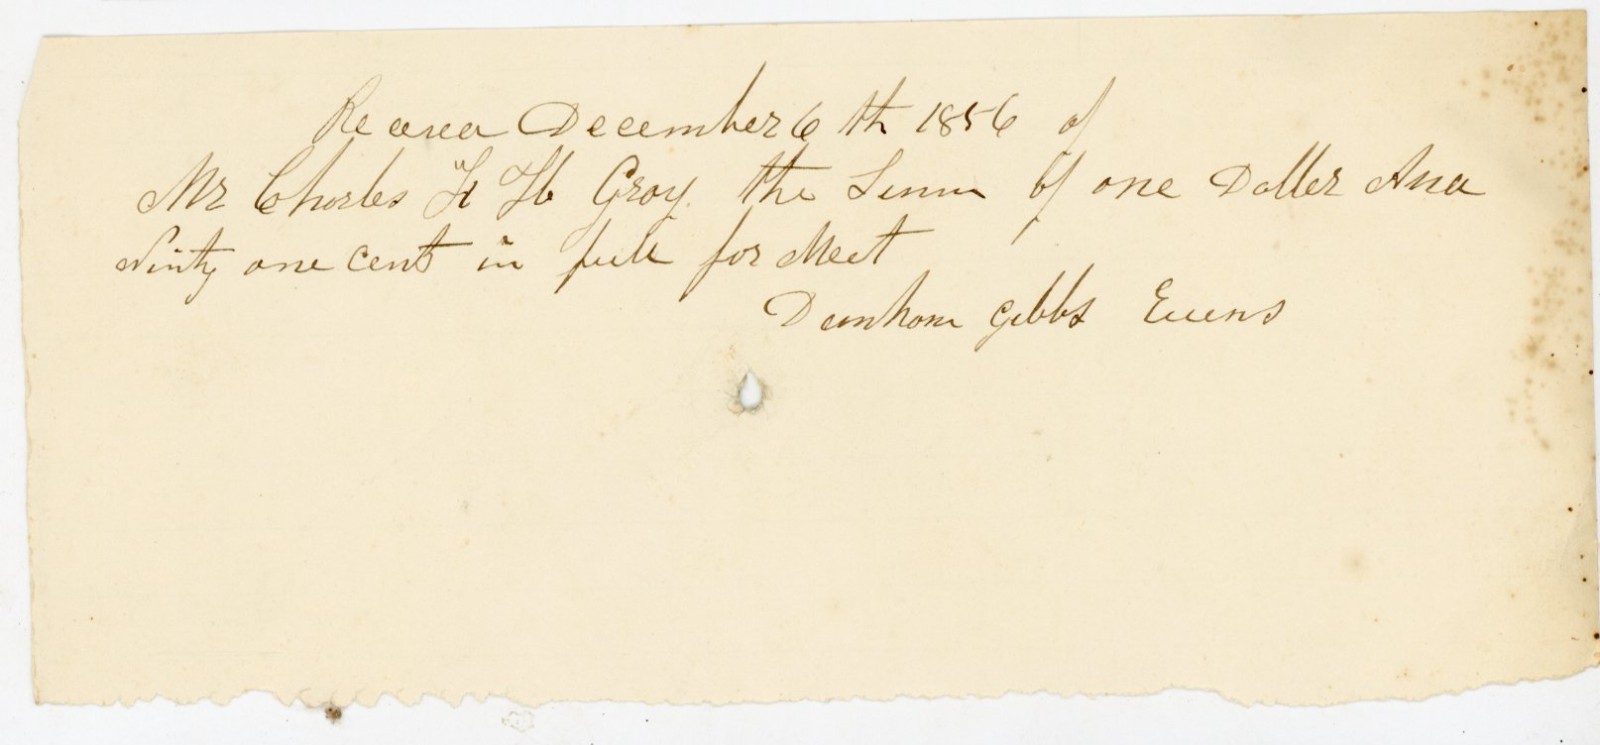 Receved December 6 th 1856 of
Mr Charles H Gray the Summ of one Doller And
Ninty one cents in full for Meet
Dunham Gibbs Evens